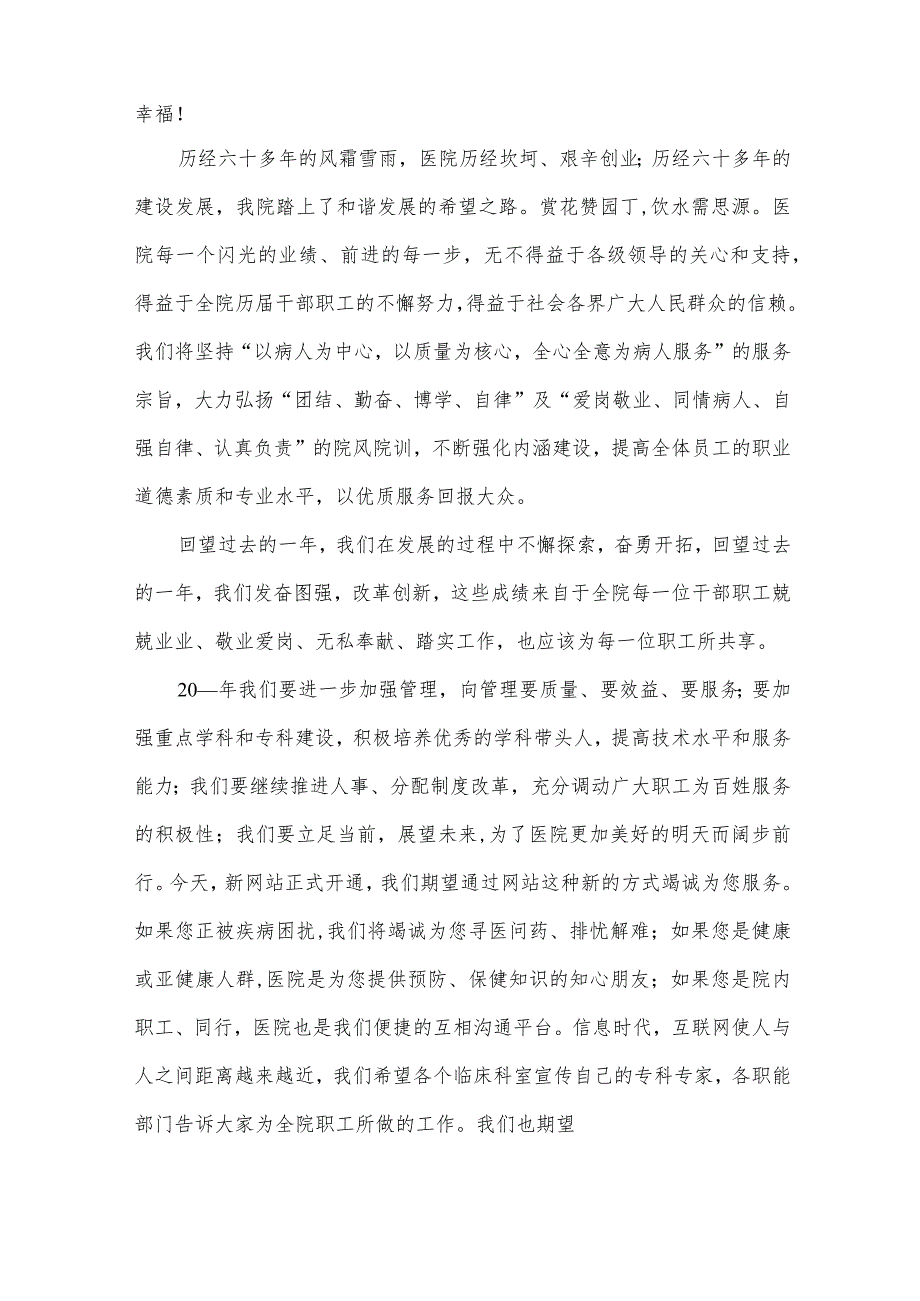 幸福！
历经六十多年的风霜雪雨，医院历经坎坷、艰辛创业；历经六十多年的
建设发展，我院踏上了和谐发展的希望之路。赏花赞园丁,饮水需思源。医
院每一个闪光的业绩、前进的每一步，无不得益于各级领导的关心和支持，
得益于全院历届干部职工的不懈努力,得益于社会各界广大人民群众的信赖。
我们将坚持“以病人为中心，以质量为核心，全心全意为病人服务”的服务
宗旨，大力弘扬“团结、勤奋、博学、自律”及“爱岗敬业、同情病人、自
强自律、认真负责”的院风院训，不断强化内涵建设，提高全体员工的职业
道德素质和专业水平，以优质服务回报大众。
回望过去的一年，我们在发展的过程中不懈探索，奋勇开拓，回望过去
的一年，我们发奋图强，改革创新，这些成绩来自于全院每一位干部职工兢
兢业业、敬业爱岗、无私奉献、踏实工作，也应该为每一位职工所共享。
20—年我们要进一步加强管理，向管理要质量、要效益、要服务；要加
强重点学科和专科建设，积极培养优秀的学科带头人，提高技术水平和服务
能力；我们要继续推进人事、分配制度改革，充分调动广大职工为百姓服务
的积极性；我们要立足当前，展望未来,为了医院更加美好的明天而阔步前
行。今天，新网站正式开通，我们期望通过网站这种新的方式竭诚为您服务。
如果您正被疾病困扰,我们将竭诚为您寻医问药、排忧解难；如果您是健康
或亚健康人群,医院是为您提供预防、保健知识的知心朋友；如果您是院内
职工、同行，医院也是我们便捷的互相沟通平台。信息时代，互联网使人与
人之间距离越来越近，我们希望各个临床科室宣传自己的专科专家，各职能
部门告诉大家为全院职工所做的工作。我们也期望